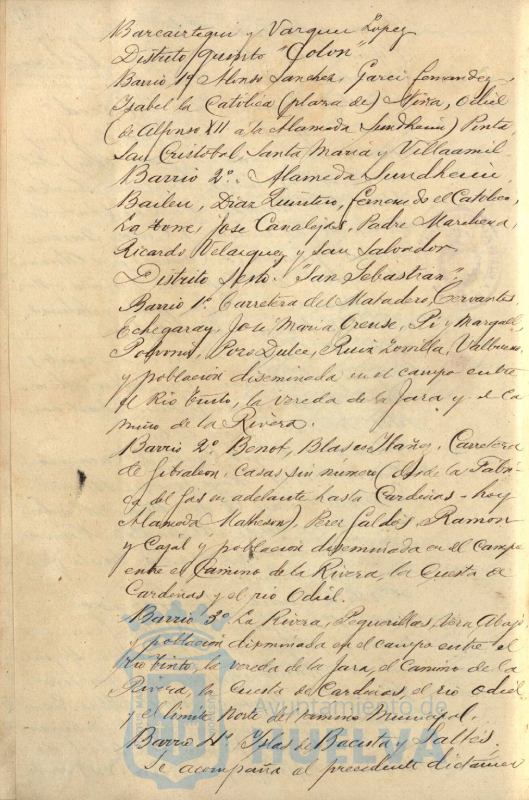 Barcaiztegui y Vazquez Lopez
Distrito quinto "Colon".
Barrio 1º Alonso Sanchez, Garci Fernandez,
Isabel la Católica (plaza de) Niña, Odiel
(de Alfonso XII a la Alameda Sundheim) Pinta,
San Cristobal, Santa Maria y Villaamil.
Barrio 2º. Alameda Sundheim
Bailen, Diaz Quintero, Fernando el Católico,
La Torre, Jose Canalejas, Padre Marchena,
Ricardo Velazquez y San Salvador
Distrito Sexto. "San Sebastian".
Barrio 1º Carretera del Matadero, Cervantes,
Echegaray, Jose Maria Orense, Pi y Margall,
Polvorin, Pozo Dulce, Ruiz Zorrilla, Valbueno,
y población diseminada en el campo entre
el Rio Tinto, la vereda de la Jara y el Ca
mino de la Rivera.
Barrio 2º Benot, Blasco Ibañez, Carretera
de Gibraleon, Casas sin numero (desde la Fábri-
ca del gas en adelante hasta Cardeñas - hoy
Alameda Matheson), Perez Galdós, Ramon
y Cajal y población diseminada en el Campo
entre el Camino de la Rivera, la Cuesta de
Cardeñas y el rio Odiel.
Barrio 3º La Rivera, Peguerillas, Vera Abajo
y población diseminada en el campo entre el
rio Tinto, la vereda de la Jara, el Camino de la
Rivera, la Cuesta de Cardeñas, el rio Odiel
y el limite Norte del termino Municipal.
Barrio 4º Islas de Bacuta y Saltés.
Se acompaña al precedente dictamen
Ayuntamiento de
HUELVA